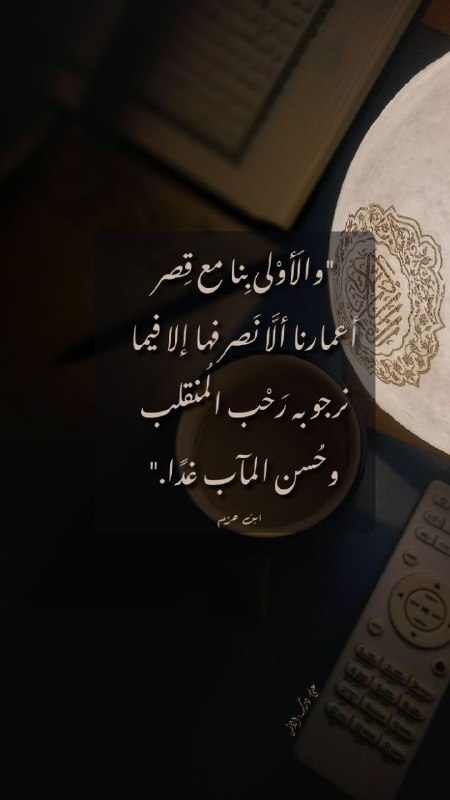 "والَأوْلى بِنا مع قِصر
أعمارنا ألَّا نَصرفها إلا فيما
نرجو به رَحْب المُنقلب
وحُسن المآب غدًا."
ابن حزم